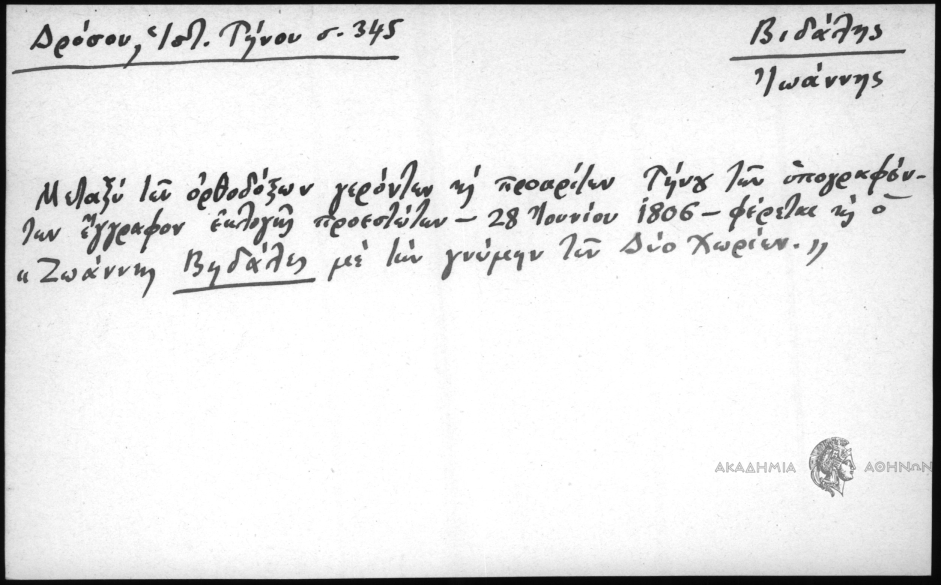 Δρόσου, Ἱστ. Τήνου σ. 345
Βιδάλης
Ἰωάννης
Μεταξὺ τῶν ὀρθοδόξων γερόντων κὴ προαρίτων Τήνου τῶν ὑπογραφόν-
των ἔγγραφον ἐκλογῆς προεστώτων – 28 Ἰουνίου 1806 – φέρεται κὴ ὁ
« Ζωάννης Βηδάλης μὲ τὴν γνώμην τῶν Δύο Χωρίων. »
ΑΚΑΔΗΜΙΑ ΑΘΗΝΩΝ